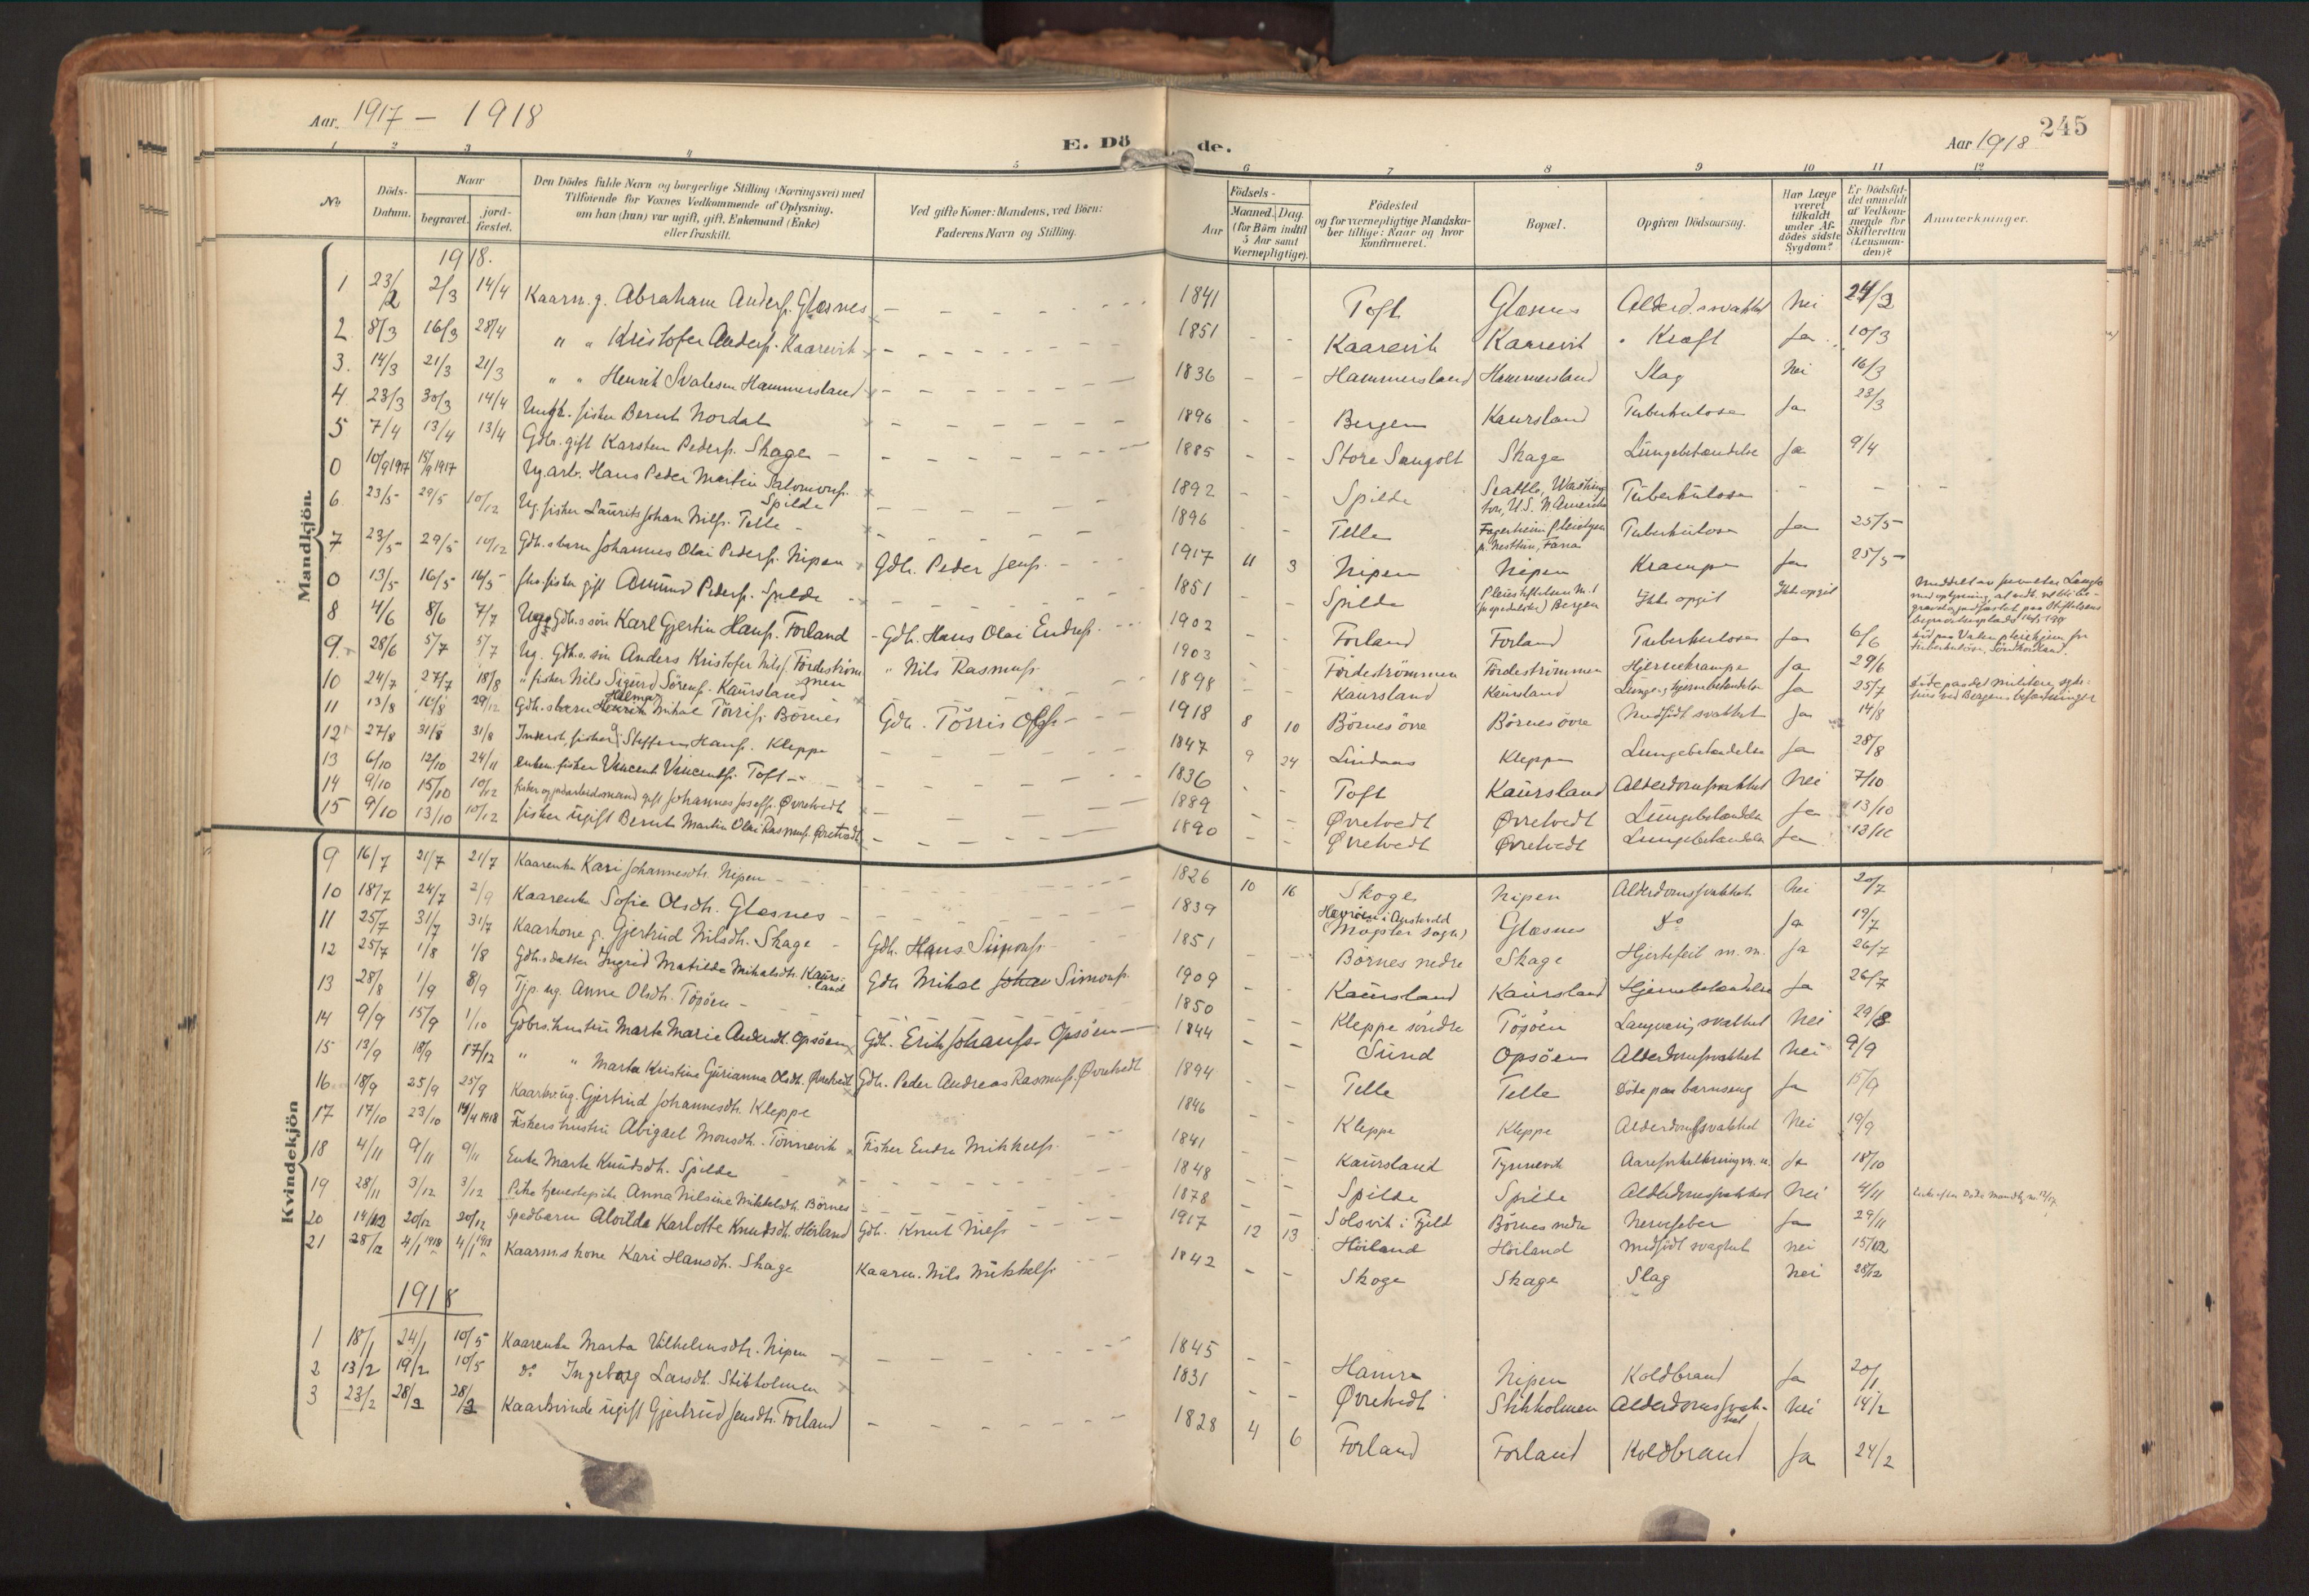 Aar. 1917 - 1918
E. Dö de.
Aar 1918
245
1 2 3 4 5 6 7 8 9 10 11 12
No
Döds-Datum.
Naar
begravet.
jord-fæstet.
Den Dödes fulde Navn og borgerlige Stilling (Næringsvei) med
Tilföiende for Voxnes Vedkommende af Oplysning,
om han (hun) var ugift, gift, Enkemand (Enke)
eller fraskilt.
Ved gifte Koner: Mandens, ved Börn:
Faderens Navn og Stilling.
Födsels-
Aar
Maaned. Dag.
(for Börn indtil
5 Aar samt
Værnepligtige).
Födested
og for værnepligtige Mandska-
ber tillige: Naar og hvor
konfirmeret.
Bopæl.
Opgiven Dödsaarsag.
Har Læge
været
tilkaldt
under Af-
dödes sidste
Sygdom?
Er Dödsfal-
det anmeldt
af Vedkom-
mende for
Skifteretten
(Lensman-
den)?
Anmerkninger.
Mandkjön.
1918.
1 23/2 2/3 14/4 Kaarm. g. Abraham Anders. Glæsnes 1841 Toft Glæsnes Alderd.svakhet Nei 24/2
2 8/3 16/3 28/4 " " Kristofer Anders. Kaarevik 1851 Kaarevik Kaarevik " Kræft Ja 10/3
3. 14/3 21/3 21/3 " " Henrik Svalesen Hammersland 1836 Hammersland Hammersland Slag Nei 16/3
4 23/3 30/3 14/4 fisker Bernt Nordal 1896 Bergen Kaursland Tuberkulose Ja 23/3
5 7/4 13/4 13/4 Gdbr. gift Karsten Peders. Skage 1885 Store Sangolt Skage Lungebetændelse Ja 9/4
0 10/9 1917 15/9 1917 Ug. arb. Hans Peder Martin Salomons. Spilde 1892 Spilde Seattle, Washington, U.S. N. Amerika Tuberkulose
6 23/5 29/5 10/12 Ug. fisker Laurits Johan Nils. Telle 1896 Telle p. Nesttun, Fana Tuberkulose Ja 25/5
7 23/5 29/5 10/12 Gdb.s barn Johannes Olai Peders. Nipen Gdb. Peder Jens. 1917 11 3 Nipen Nipen Krampe Ja 25/5
0 13/5 16/5 16/5 fisker gift Amund Peders. Spilde 1851 Spilde Pleiestiftelsen No. 1 Bergen Ikke opgit Ikke opgit
8 4/6 8/6 7/7 Gdb.s søn Karl Gjertin Hans. Forland Gdb. Hans Olai Endres. 1902 Forland Forland Tuberkulose Ja 6/6
9. 28/6 5/7 5/7 Ug. Gdb.s søn Anders Kristofer Nils. Fördeströmmen " Nils Rasmus. 1903 Fördeströmmen Fördeströmmen Hjernekrampe Ja 29/6
10 24/7 27/7 18/8 " fisker Nils Sigurd Sörens. Kaursland 1898 Kaursland Kaursland Lunge- og hjernebetændelse Ja 25/7
11 13/8 16/8 29/12 Gdb.s barn Hilmar Mikal Törris. Börnes Gdb. Törris Ols. 1918 8 10 Börnes övre Börnes övre Medfödt svakhet Ja 14/8
12 27/8 31/8 31/8 fisker Steffen Hans. Kleppe 1847 9 24 Lindaas Kleppe Lungebetændelse Ja 28/8
13 6/10 12/10 24/11 enkem. fisker Vincent Vincents. Toft 1836 Toft Kaursland Alderdomssvakhet Nei 7/10
14 9/10 15/10 10/12 fisker og jordarbeidsmand gift Johannes Josefs. Øvretvedt 1889 Øvretvedt Øvretvedt Lungebetændelse Ja 13/10
15 9/10 13/10 10/12 fisker ugift Bernt Martin Olai Rasmus. Øvretvedt 1890 Øvretvedt Øvretvedt Lungebetændelse Ja 13/10
Kvindekjön
9 16/7 21/7 21/7 Kaarenke Kari Johannesdt. Nipen 1826 10 16 Skoge Nipen Alderdomssvakhet Nei 20/7
10 18/7 24/7 2/9 Kaarenke Sofie Olsdt. Glæsnes 1839 i Austevold (Møgster sogn) Glæsnes Do Ja 19/7
11 25/7 31/7 31/7 Kaarkone g. Gjertrud Nilsdt. Skage Gdb. Hans Simons. 1851 Börnes nedre Skage Hjertefeil m.m. Ja 26/7
12 25/7 1/8 1/8 Gdb.s datter Ingrid Matilde Mikalsdt. Kaursland Gdb. Mikal Johan Simons. 1909 Kaursland Kaursland Hjernebetændelse Ja 26/7
13 28/8 1/9 8/9 Tjp. ug. Anna Olsdt. Tösöen 1850 Kleppe söndre Tösöen Langvarig svakhet Nei 29/8
14 9/9 15/9 1/10 Gdbrs. hustru Marta Marie Andersdt. Opsöen Gdb. Erik Johannes. Opsöen 1844 Sund Opsöen Alderdomssvakhet Nei 9/9
15 13/9 18/9 17/12 " " Marta Kristine Gurianna Olsdt. Øvretvedt Gdb. Peder Andreas Rasmus. Øvretvedt 1894 Telle Telle Döde paa barnseng Ja 15/9
16 18/9 25/9 25/9 Kaarkv. ug. Gjertrud Johannesdt. Kleppe 1846 Kleppe Kleppe Alderdomssvakhet Nei 19/9
17 17/10 23/10 14/4 1918 Fiskers hustru Abigael Monsdt. Tönnevik Fisker Endre Mikkels. 1841 Kaursland Tynnevik Aareforkalkning m.m. Ja 18/10
18 4/11 9/11 9/11 Enke Marte Knudsdt. Spilde 1848 Spilde Spilde Alderdomssvakhet Nei 4/11
19 28/11 3/12 3/12 Pike tjenestepike Anna Nilsine Mikkelsdt. Börnes 1878 Solsvik i Fjell Börnes nedre Nervefeber Ja 29/11
20 14/12 20/12 20/12 Spædbarn Alvilde Karlotte Knudsdt. Höiland Gdb. Knut Niels. 1917 12 13 Höiland Höiland Medfödt svaghet nei 15/12
21 28/12 4/1 1918 4/1 1918 Kaarm.s kone Kari Hansdt. Skage Kaarm. Nils Mikkels. 1842 Skoge Skage Slag Nei 28/12
1918
1 18/1 24/1 10/5 Kaarenke Marta Vilhelmsdt. Nipen 1845 Hamre Nipen Koldbrand Ja 20/1
2 13/2 19/2 10/5 Do Ingeborg Larsdt. Stibholmen 1831 Øvretvedt Stibholmen Alderdomssvakhet Nei 14/2
3 23/2 28/2 28/2 Kaarkvinde ugift Gjertrud Jensdt. Forland 1828 4 6 Forland Forland Koldbrand Ja 24/2